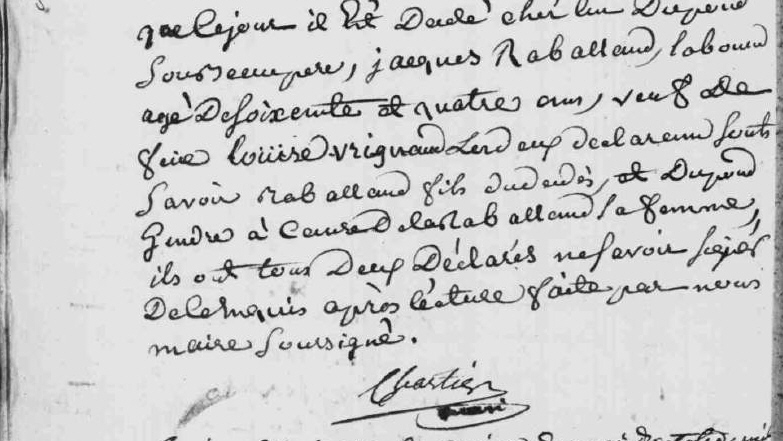 que le jour il Est Dcedé cher lun Dupond
Sous beaupere, jacques Raballand, laboureur
agé De Soixente et quatre ans, veuf de
feue loüise vrignaud Les deux declarents sont
Savoir Raballand fils du dcédé, et Dupond
Gendre à Cause De la Raballand Sa femme,
ils ont tous Deux Déclarés ne Savoir Signér
De ce requis après lécture faite par nous
maire Soussigné.
Chartier
maire